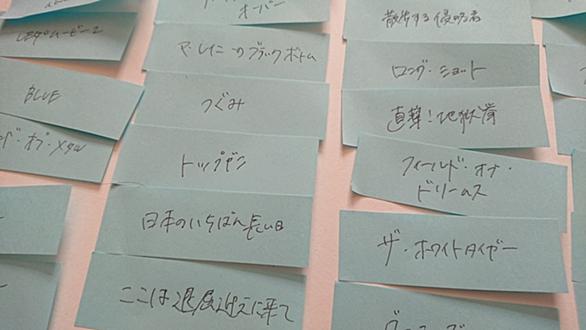 レゴムービー2
BLUE
ド・オブ・メタル
オーバー
マ・レイニーのブラックボトム
つぐみ
トップガン
日本のいちばん長い日
ここは退屈迎えに来て
散歩する侵略者
ロング・ショット
直撃!地獄拳
フィールド・オブ・
ドリームス
ザ・ホワイトタイガー